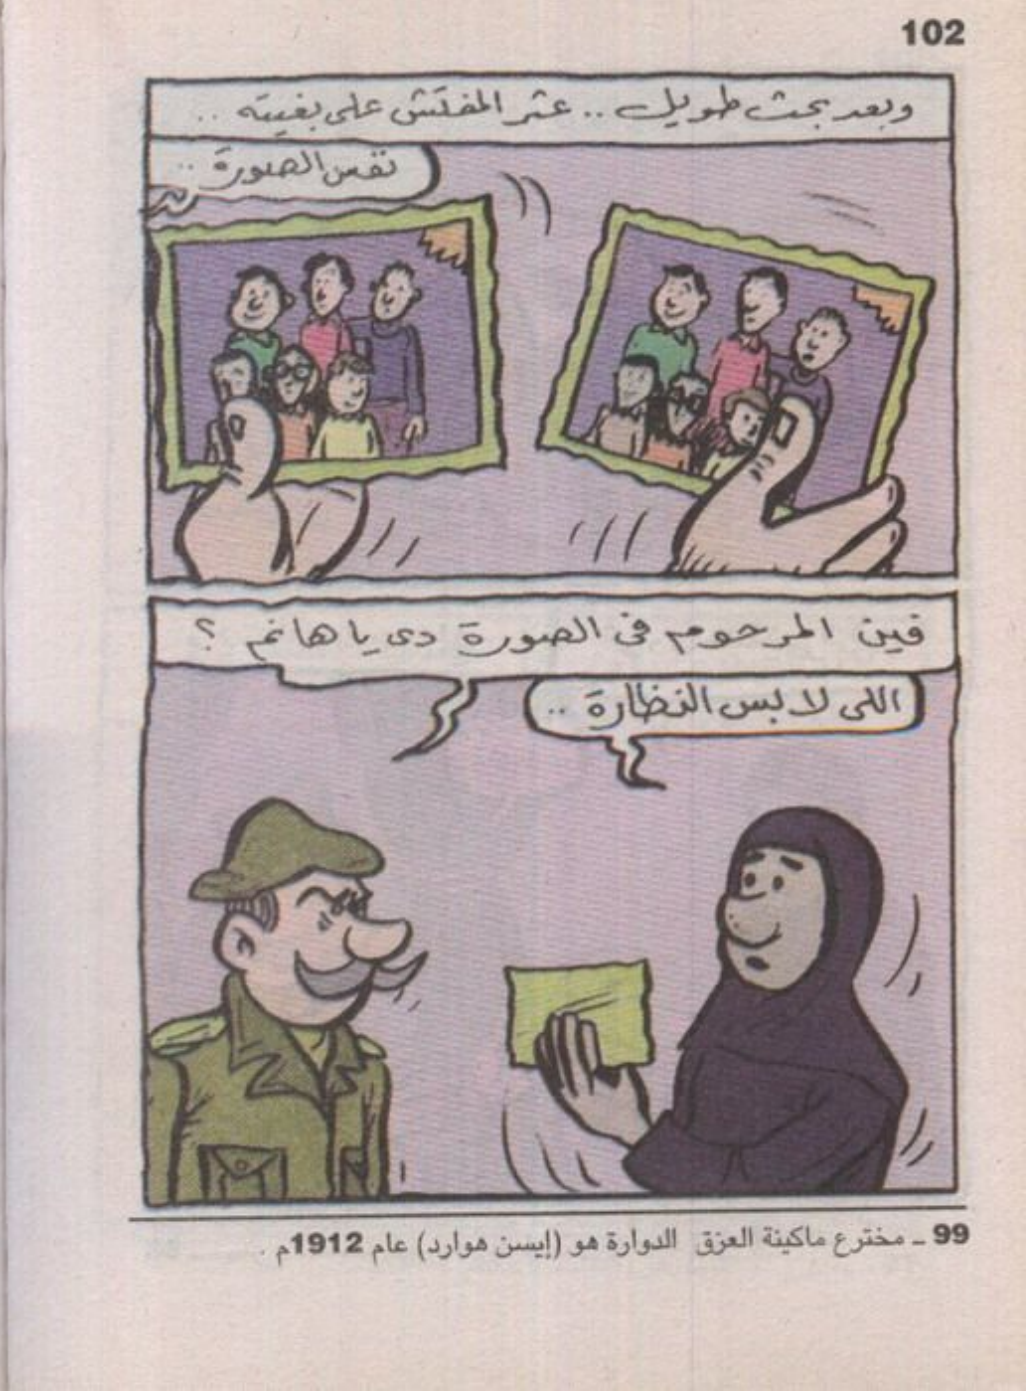 102
وبعد بحث طويل .. عثر المفتش على بغيته ..
نفس الصورة ..
فين المرحوم فى الصورة دى يا هانم ؟
اللى لابس النظارة ..
99 ـ مخترع ماكينة العزق الدوارة هو (إيسن هوارد) عام 1912م .